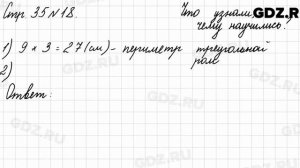 Стр. 35 № 18.
Что узнали,
чему научились?
GDZ.RU
1) 9 х 3 = 27 (см) - периметр треугольной
рамк
2)
Ответ: